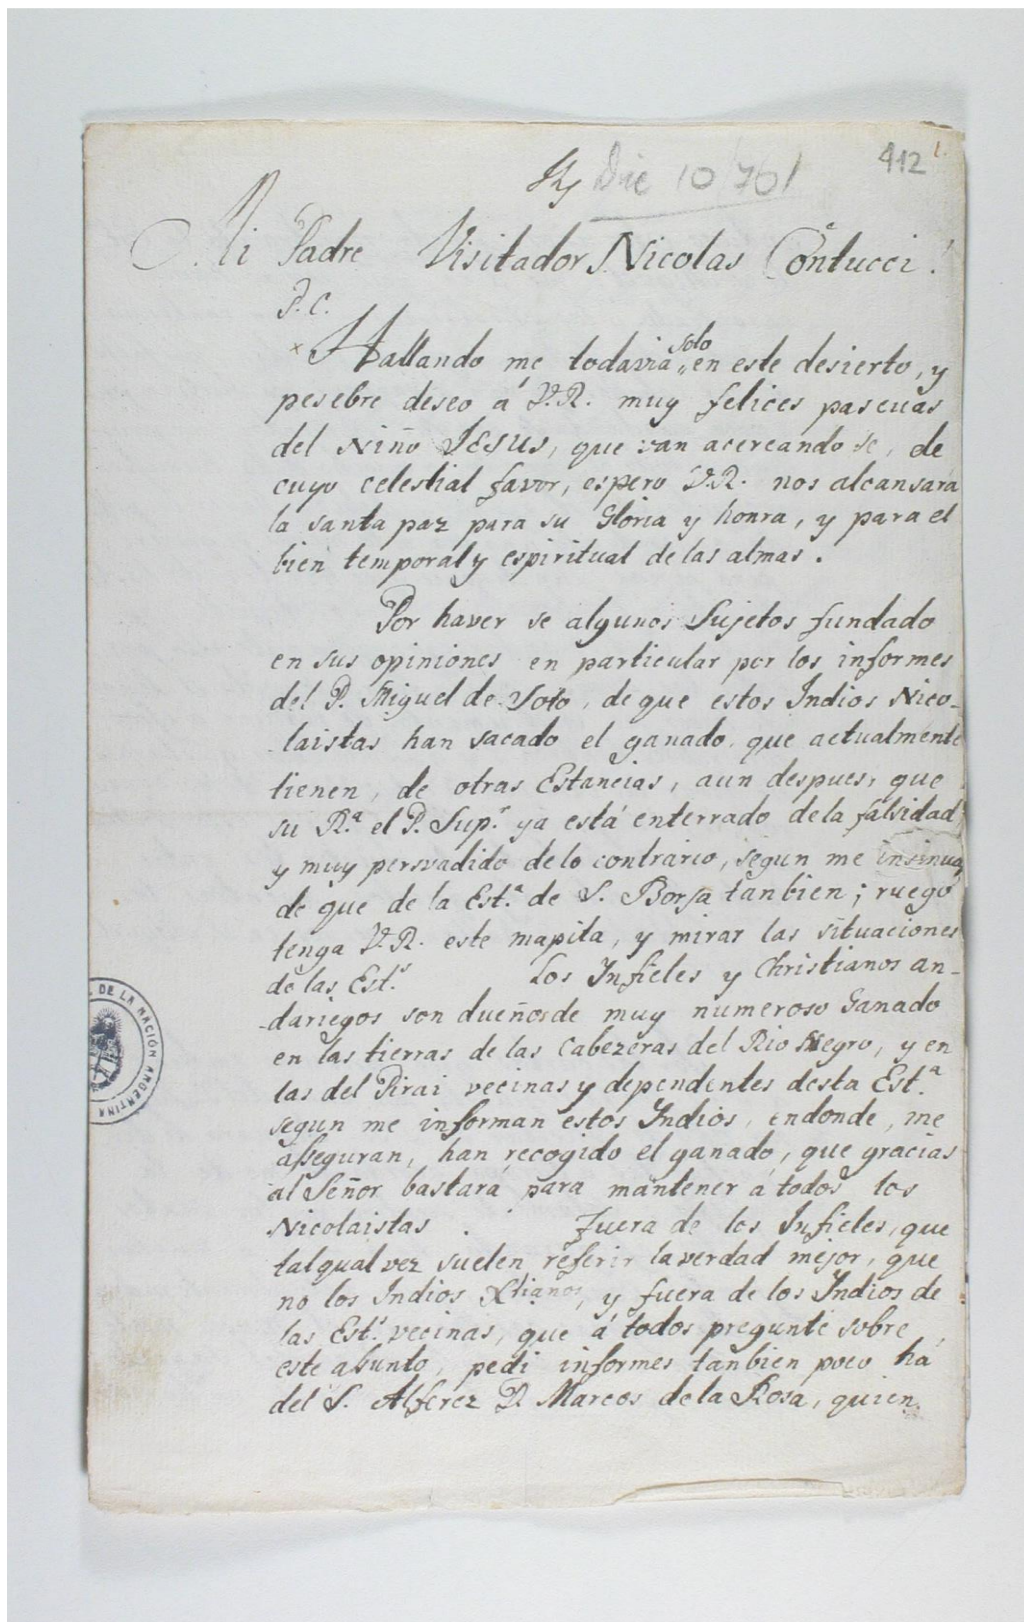 Dic 10 761
412
1.
Mi Padre Visitador Nicolas Contucci.
P. C.
Hallando me todavia solo en este desierto, y
pesebre deseo á V.R. muy felices pascuas
del Niño JESUS, que van acercando se, de
cuyo celestial favor, espero V.R. nos alcansará
la santa paz para su Gloria y honra, y para el
bien temporal y espiritual de las almas.
Por haver se algunos Sujetos fundado
en sus opiniones en particular por los informes
del P. Miguel de Soto, de que estos Indios Nico-
laistas han sacado el ganado, que actualmente
tienen, de otras Estancias, aun despues, que
su R.ª el P. Sup.r ya está enterrado de la falsidad
y muy persvadido de lo contrario, segun me insinua,
de que de la Est.ª de S. Borja tanbien; ruego
tenga V.R. este mapita, y mirar las situaciones
de las Est.s Los Infieles y Christianos an-
dariegos son dueños de muy numeroso Ganado
en las tierras de las Cabezeras del Rio Negro, y en
las del Pirai vecinas y dependentes desta Est.ª
segun me informan estos Indios, endonde, me
asseguran, han recogido el ganado, que gracias
al Señor bastará para mantener a todos los
Nicolaistas. Fuera de los Infieles, que
talqual vez suelen referir la verdad mejor, que
no los Indios Xtianos, y fuera de los Indios de
las Est.s vecinas, que á todos pregunté sobre
este asunto, pedi informes tanbien poco há
del S. Alferez D. Marcos de la Rosa, quien
DE LA NACIÓN ARGENTINA